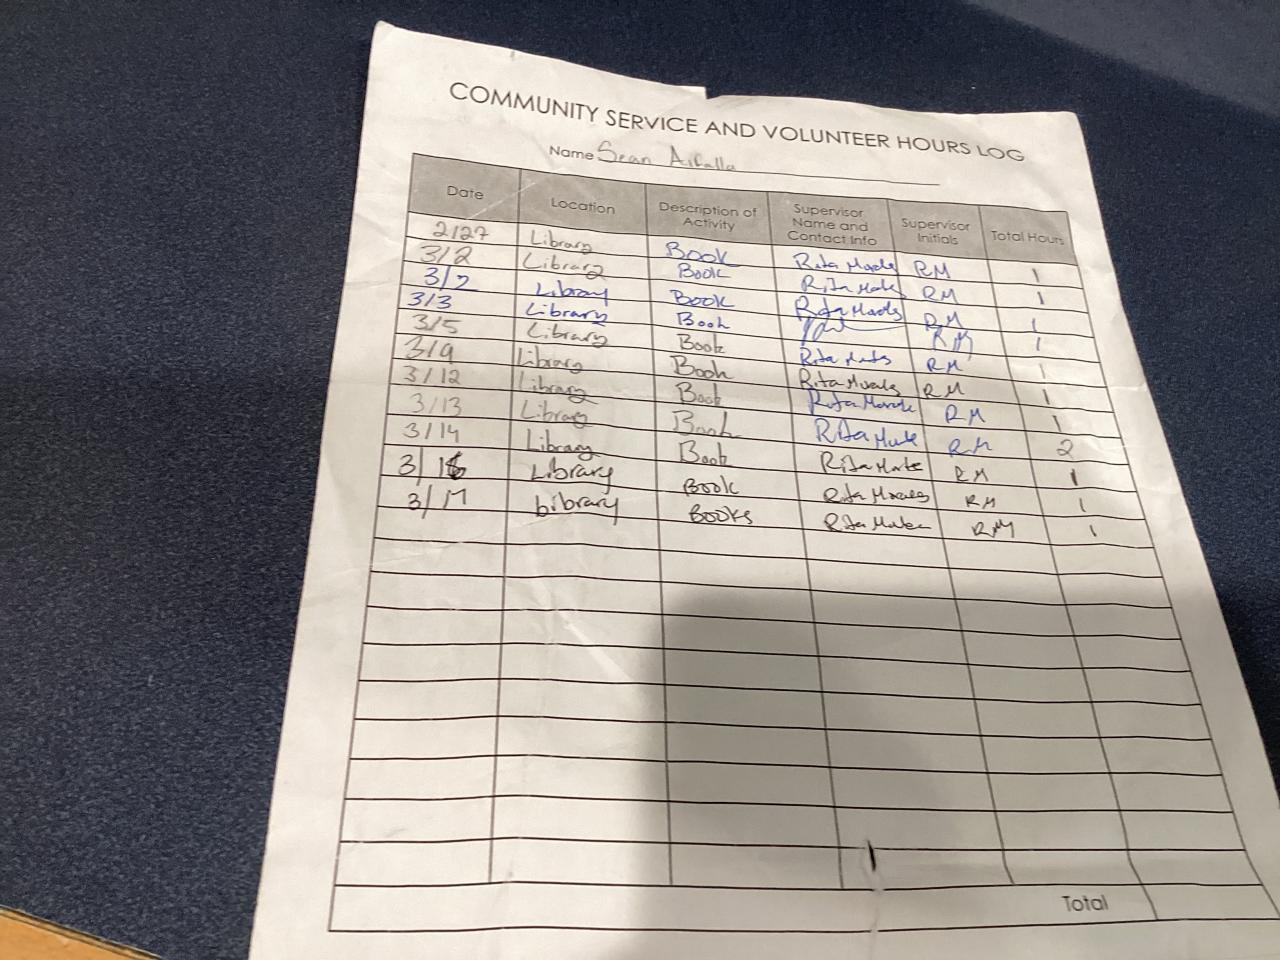 COMMUNITY SERVICE AND VOLUNTEER HOURS LOG
Name Sean
Date Location Description of Activity Supervisor Name and Contact Info Supervisor Initials Total Hours
2/27 Library Book Rita Morales RM 1
3/2 Library Book Rita RM 1
3/2 Library Book Rita Morales RM 1
3/3 Library Book RM 1
3/5 Library Book Rita RM 1
3/9 Library Book Rita Morales RM 1
3/12 Library Book Rita RM 1
3/13 Library Book Rita RM 2
3/14 Library Book Rita RM 1
3/16 Library Book Rita Morales RM 1
3/17 Library Books Rita RM 1
Total